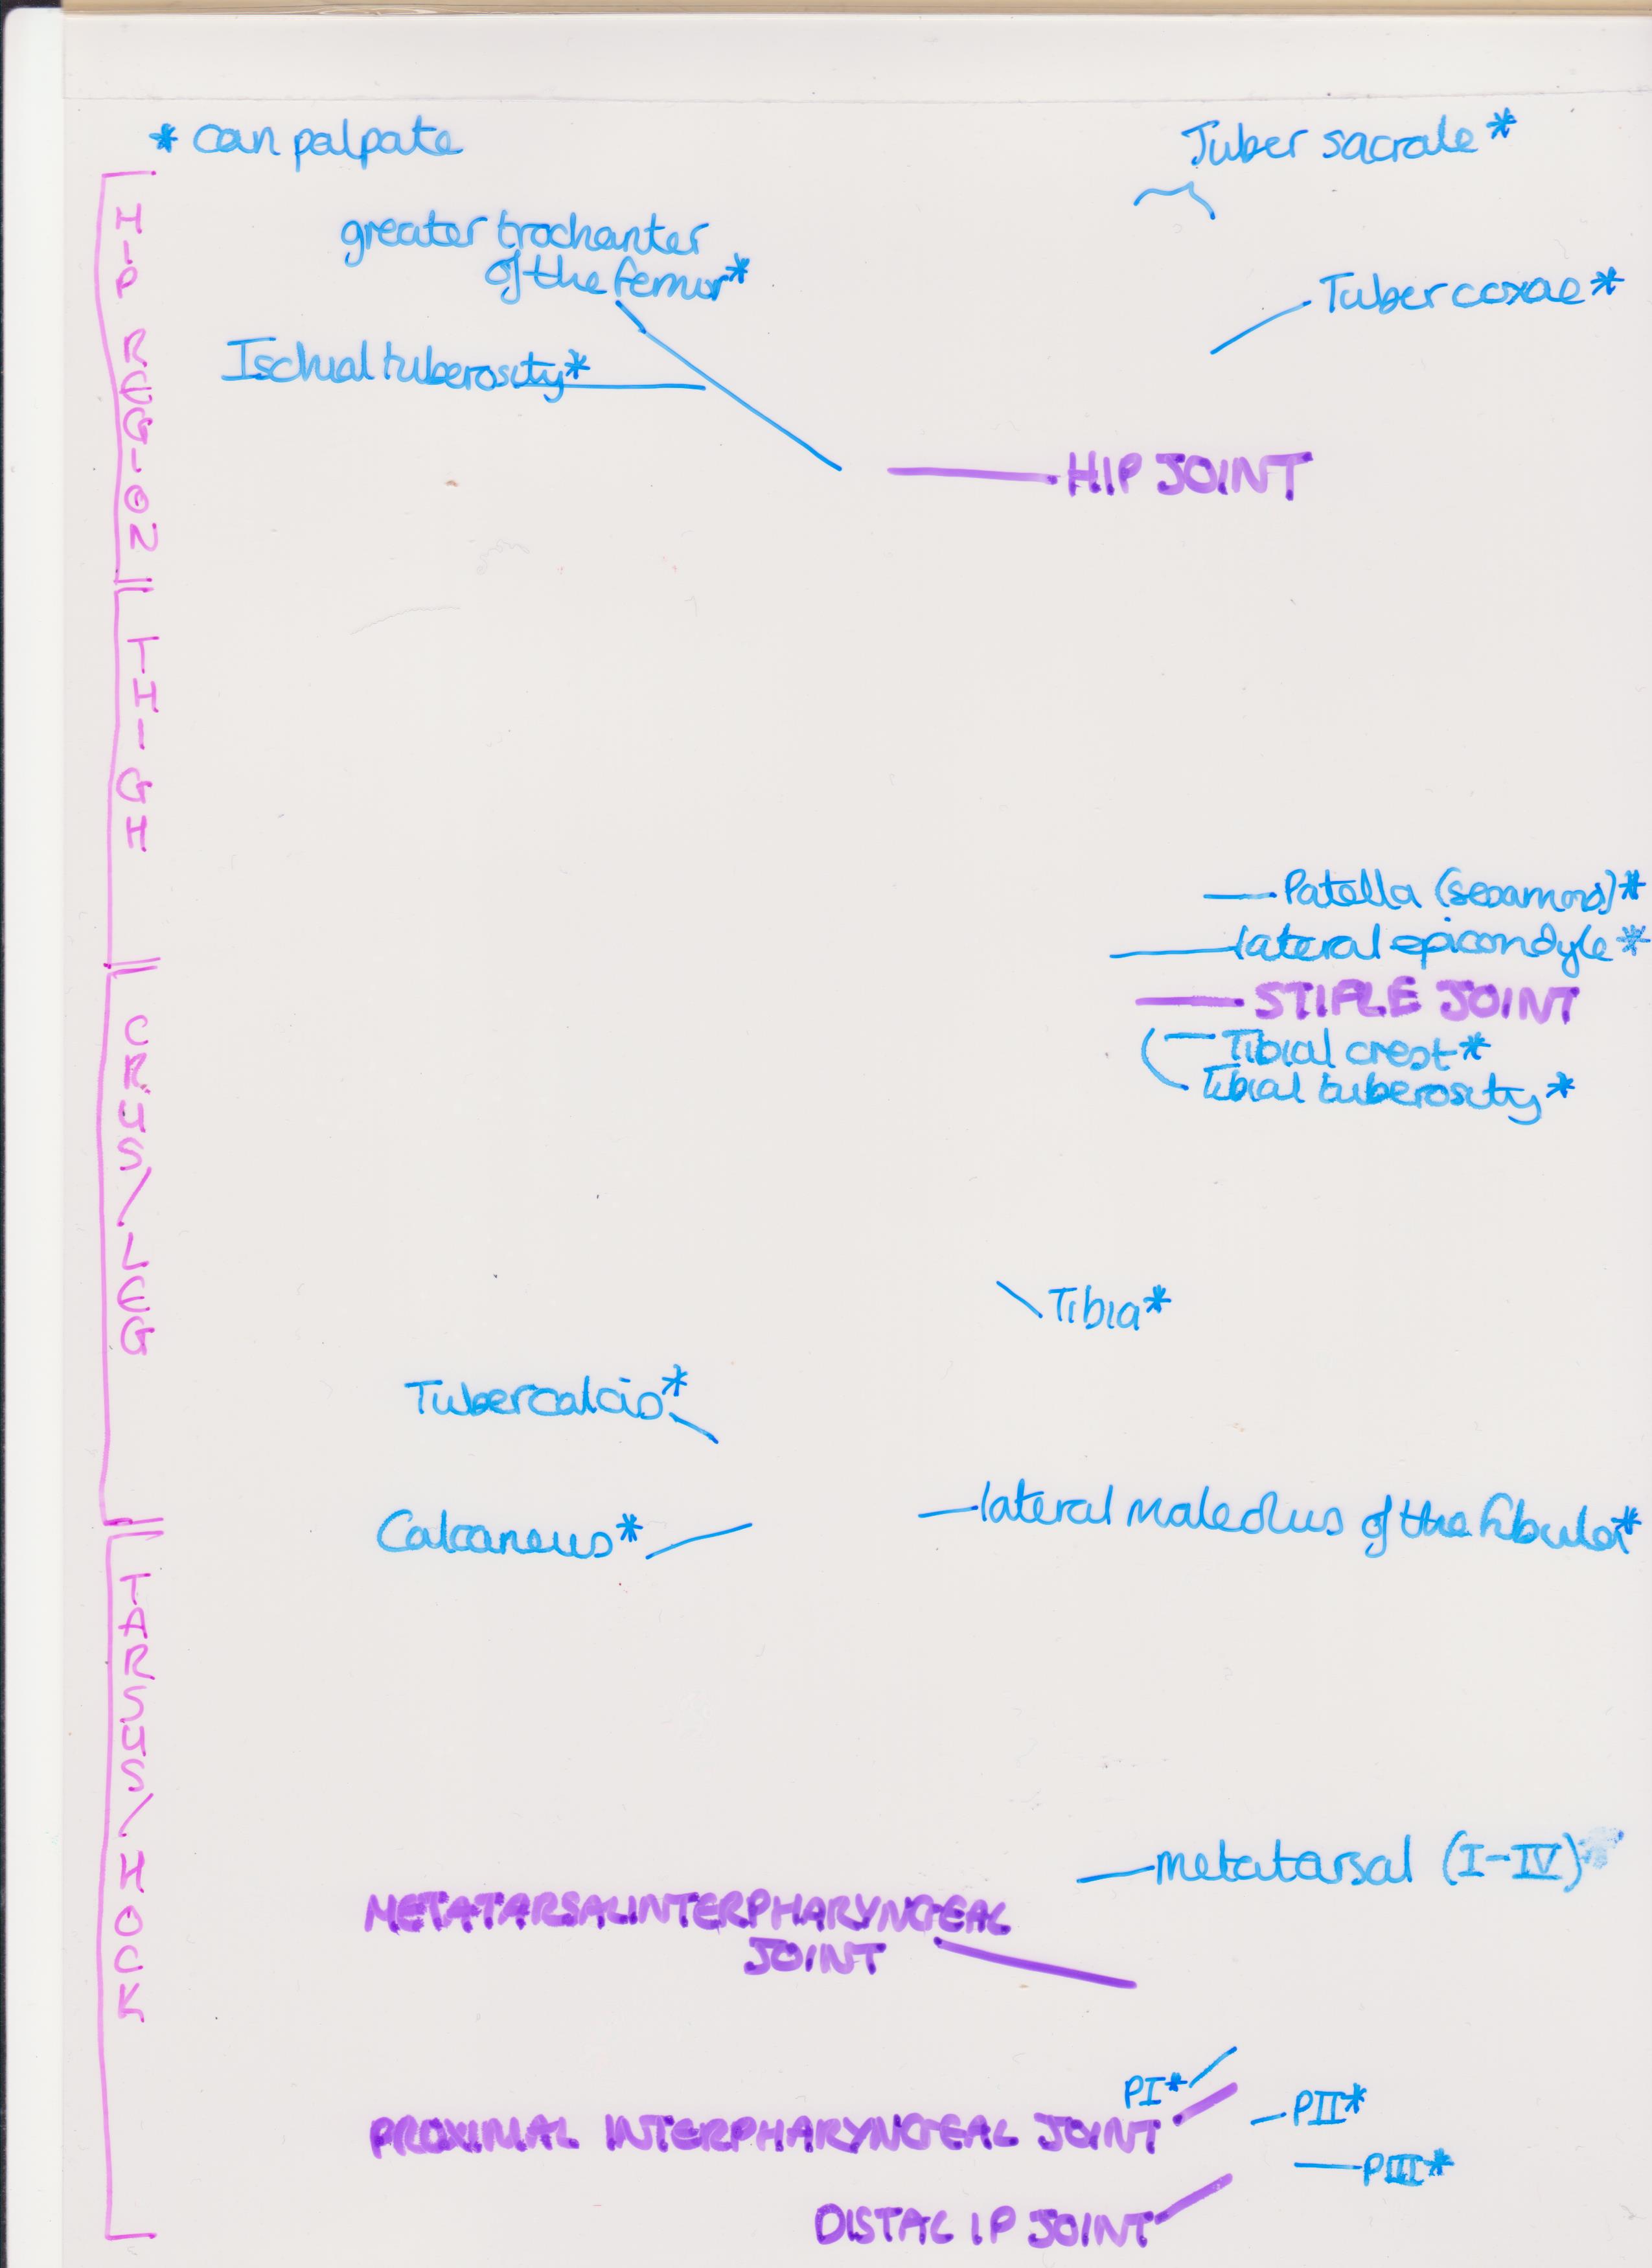 * can palpate
Tuber sacrale*
greater trochanter
of the femur*
Tuber coxae*
Ischial tuberosity*
HIP JOINT
HIP REGION
THIGH
Patella (sesamoid)*
lateral epicondyle*
STIFLE JOINT
Tibial crest*
Tibial tuberosity*
CRUS/LEG
Tibia*
Tuber calcis*
lateral maleolus of the fibula*
Calcaneus*
TARSUS/HOCK
metatarsal (I-IV)*
METATARSALINTERPHARYNGEAL
JOINT
PI*
PII*
PROXIMAL INTERPHARYNGEAL JOINT
PIII*
DISTAL IP JOINT